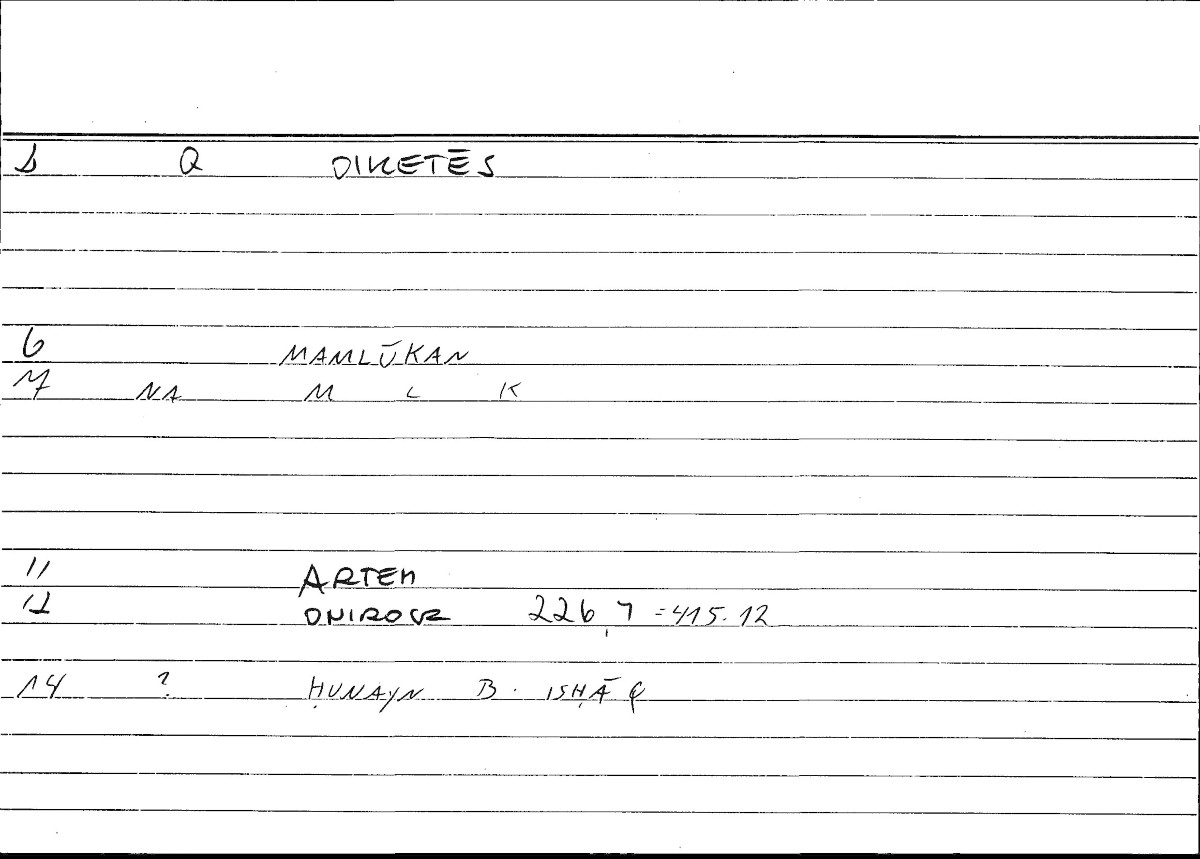 Q OIKETĒS
6 MAMLŪKAN
7 NA M L K
11 ARTEM
12 ONIROCR 226,7 = 415.12
14 ? ḤUNAYN B. ISḤĀQ